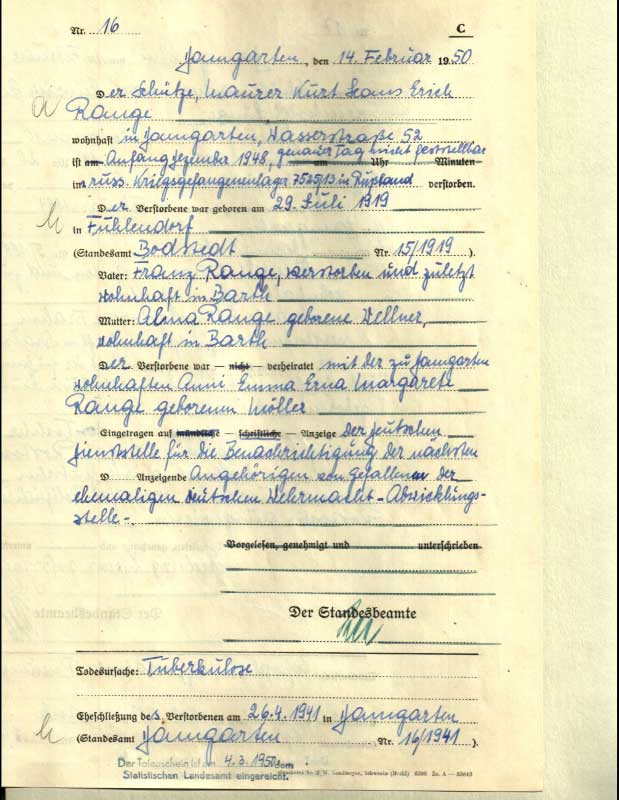 Nr. 16 C
Damgarten, den 14. Februar 1950
Der Schütze, Maurer Kurt Hans Erich
Range
wohnhaft in Damgarten, Wasserstraße 52
ist am Anfang Dezember 1948, genauer Tag nicht feststellbar um Uhr Minuten
im russ. Kriegsgefangenenlager 7525/13 in Rußland verstorben.
Der Verstorbene war geboren am 29. Juli 1919
in Fuhlendorf
(Standesamt Bodstedt Nr. 15/1919).
Vater: Franz Range, verstorben und zuletzt
wohnhaft in Barth
Mutter: Alma Range geborene Wellner,
wohnhaft in Barth
Der Verstorbene war — nicht — verheiratet mit der zu Damgarten
wohnhaften Anni Emma Erna Margarete
Range geborenen Möller
Eingetragen auf mündliche — schriftliche — Anzeige der Deutschen
Dienststelle für die Benachrichtigung der nächsten
D Anzeigende Angehörigen von Gefallenen der
ehemaligen deutschen Wehrmacht - Abwicklungs-
stelle-.
Vorgelesen, genehmigt und unterschrieben
Der Standesbeamte
Todesursache: Tuberkulose
Eheschließung des Verstorbenen am 26.4.1941 in Damgarten
(Standesamt Damgarten Nr. 16/1941).
Der Totenschein ist am 4.3.1950 dem
Statistischen Landesamt eingereicht.